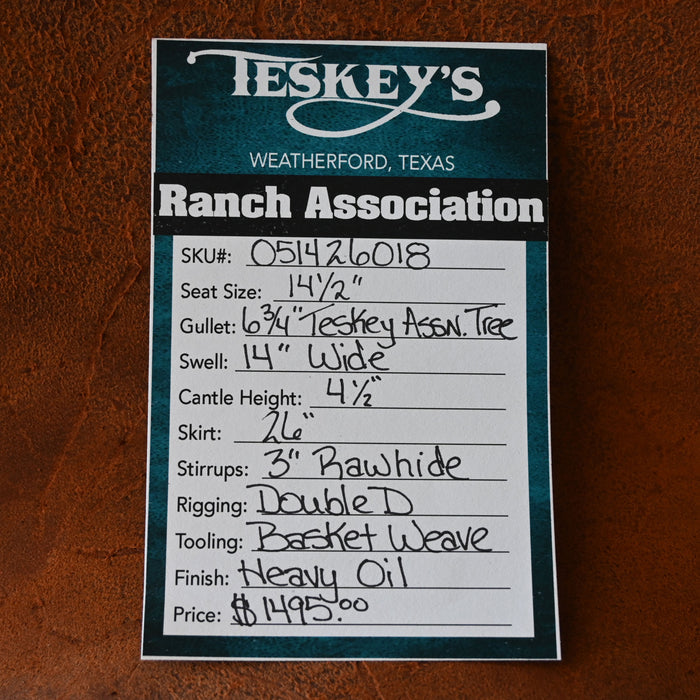 TESKEY'S
WEATHERFORD, TEXAS
Ranch Association
SKU#: 051426018
Seat Size: 14 1/2"
Gullet: 6 3/4" Teskey Assn. Tree
Swell: 14" Wide
Cantle Height: 4 1/2"
Skirt: 26"
Stirrups: 3" Rawhide
Rigging: Double D
Tooling: Basket Weave
Finish: Heavy Oil
Price: $1495.00